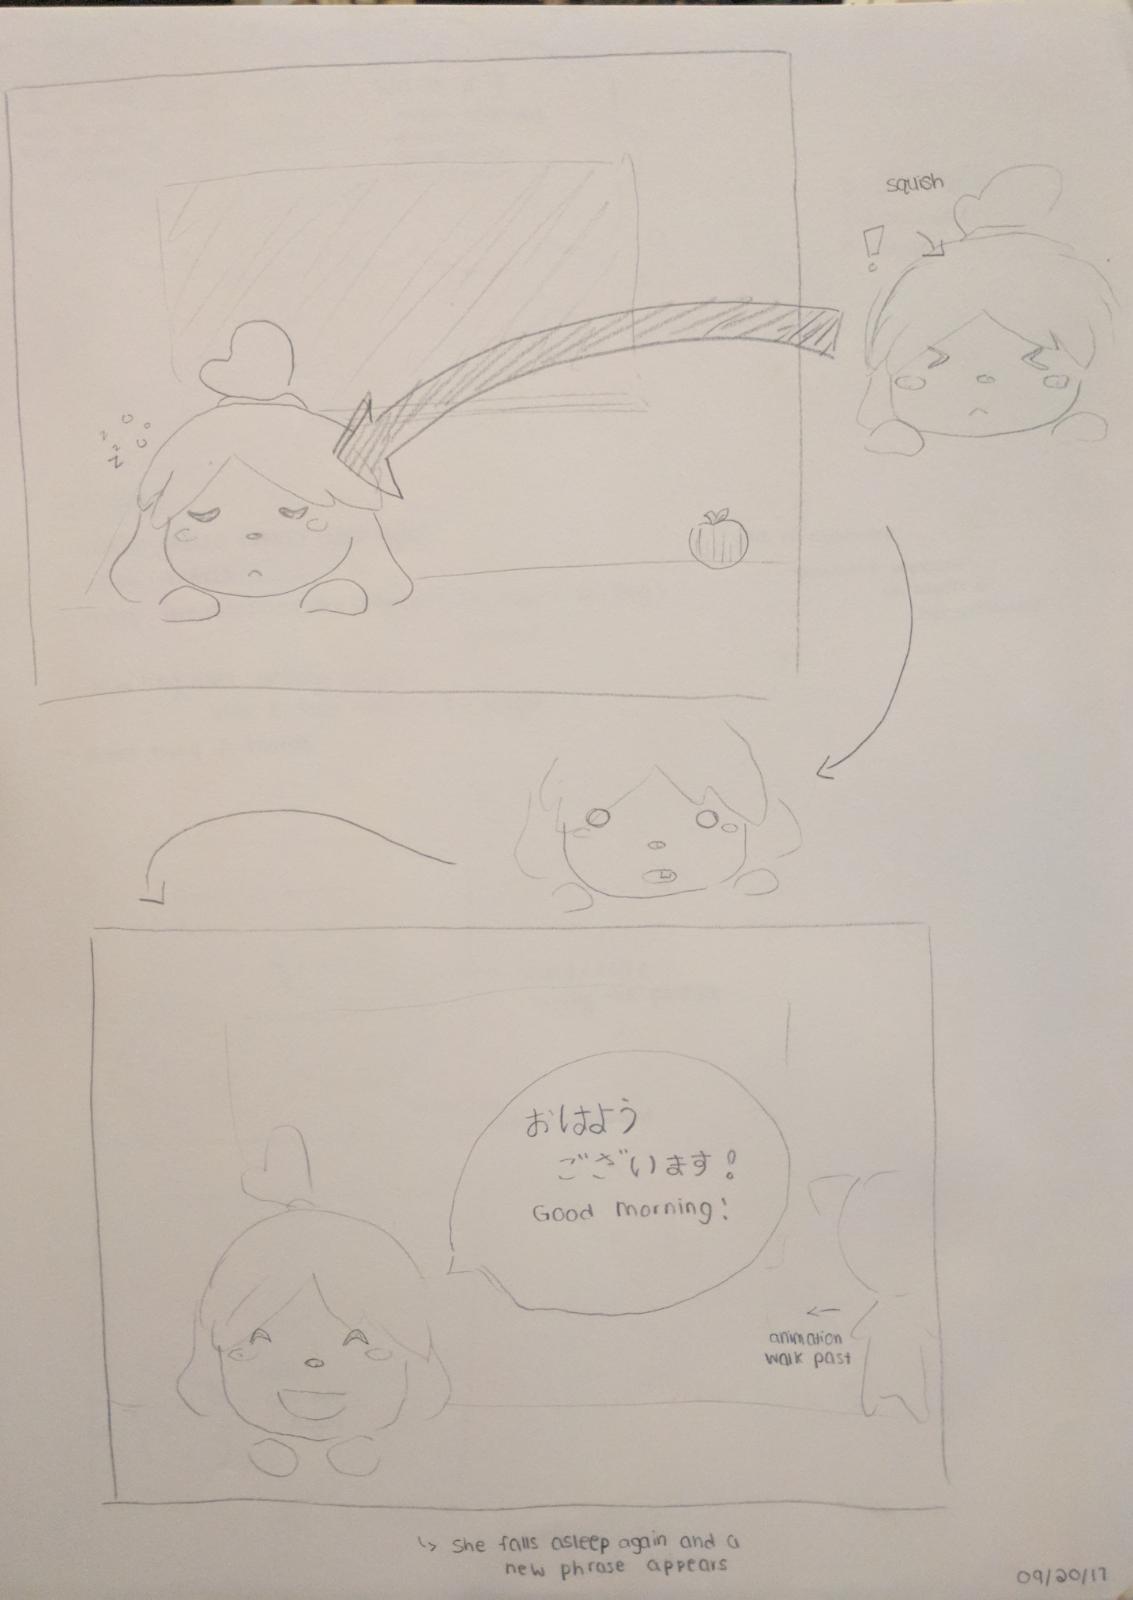 squish
!
z z z
おはよう
ございます!
Good morning!
←
animation
walk past
↳ She falls asleep again and a
new phrase appears
09/20/17